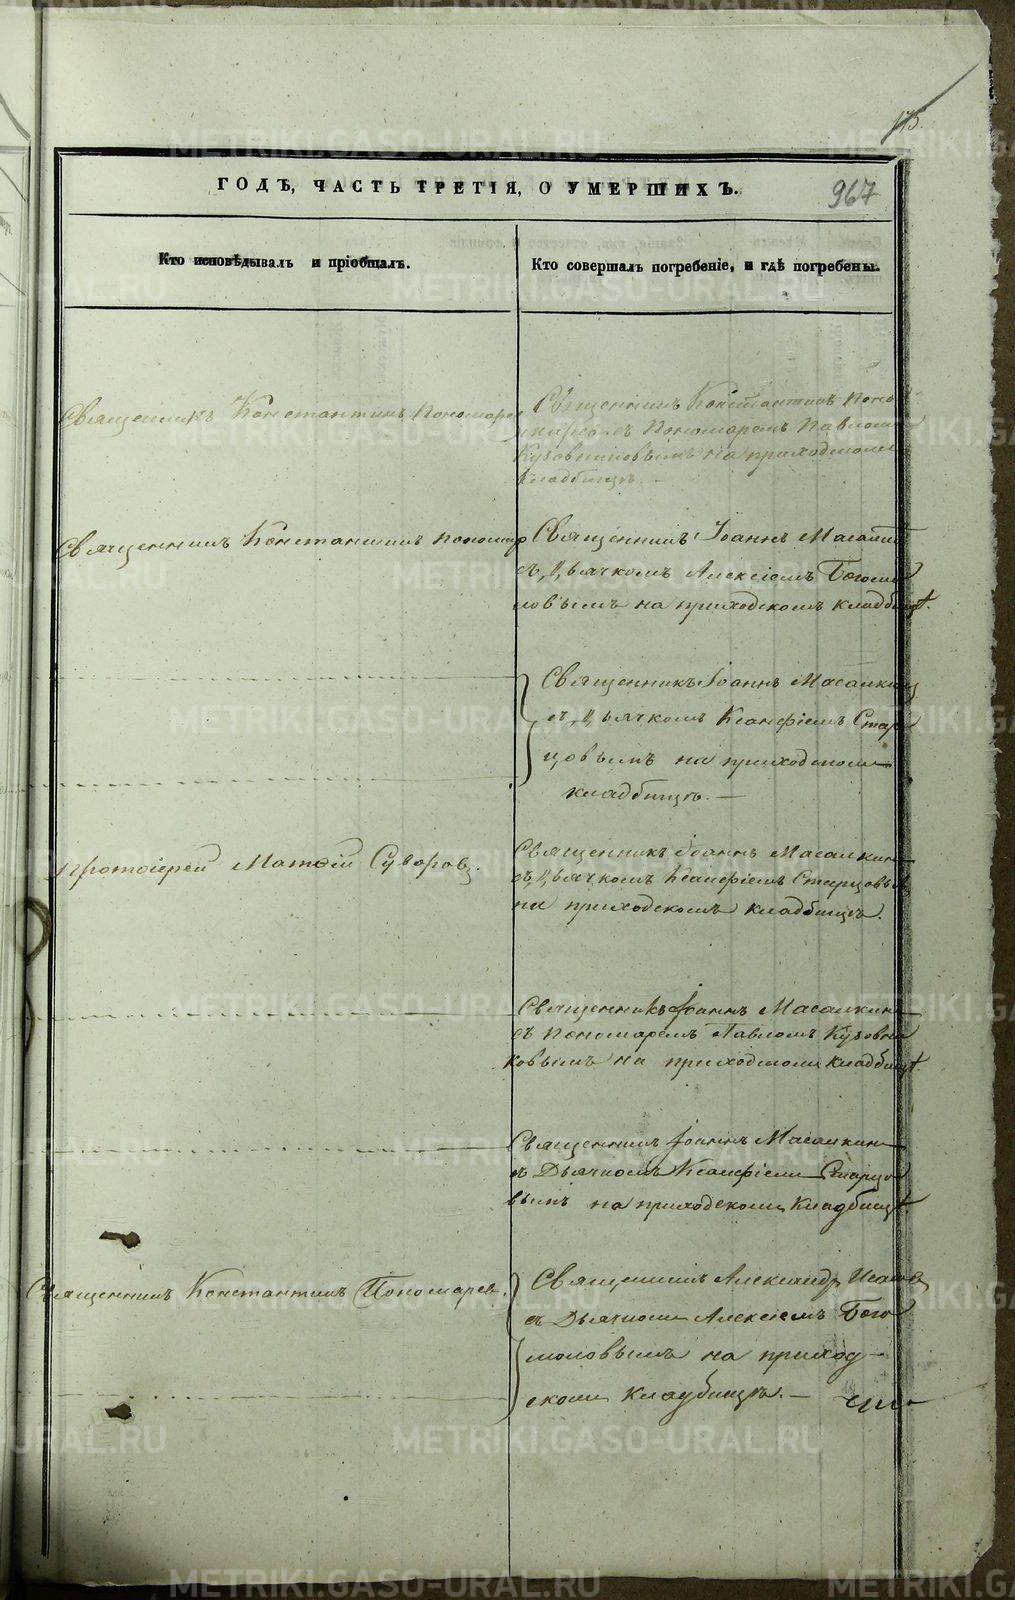 175.
ГОДЪ, ЧАСТЬ ТРЕТІЯ, О УМЕРШИХЪ.
967
Кто исповѣдывалъ и пріобщалъ.
Кто совершалъ погребеніе, и гдѣ погребены.
Священникъ Константинъ Пономарев
Священникъ Константинъ Поно
маревъ съ Пономаремъ Павломъ
Кузовниковымъ на приходскомъ
кладбищѣ. —
Священникъ Константинъ Пономар
Священникъ Іоаннъ Масалкин
съ Дьячкомъ Алексіемъ Богомо
ловымъ на приходскомъ кладбищѣ.
Священникъ Іоаннъ Масалкинъ
съ Дьячкомъ Ксанфіемъ Стар
цовымъ на приходскомъ
кладбищѣ. —
Протоіерей Матѳій Суворовъ.
Священникъ Іоаннъ Масалкинъ
съ Дьячкомъ Ксанфіемъ Старцовым
на приходскомъ кладбищѣ.
Священникъ Іоаннъ Масалкинъ
съ Пономаремъ Павломъ Кузовни
ковымъ на приходскомъ кладбищѣ.
Священникъ Іоаннъ Масалкин
съ Дьячкомъ Ксанфіемъ Старцо
вымъ на приходскомъ кладбищѣ.
Священникъ Константинъ Пономарев.
Священникъ Александръ
съ Дьячкомъ Алексіемъ Бого
моловымъ на приход
скомъ кладбищѣ. —
METRIKI.GASO-URAL.RU